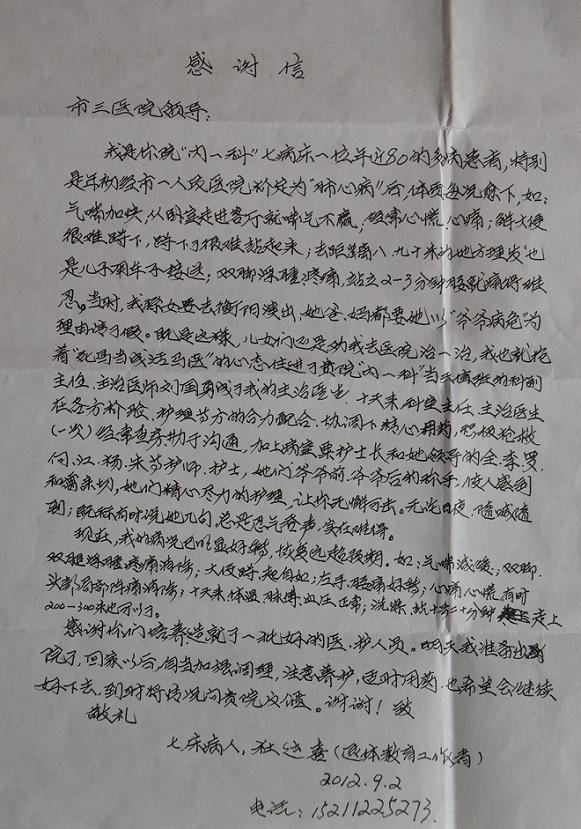 感谢信
市三医院领导:
我是你院“内一科”七病床一位年近80的多病患者,特别
是年初经市一人民医院诊定为“肺心病”后,体质每况愈下,如:
气喘加快,从卧室走进客厅就喘气不赢;经常心慌、心痛;解大便
很难蹲下,蹲下了很难站起来;去距离八、九十米的地方理发也
是儿子用车子接送;双脚浮肿疼痛,站立2-3分钟腿就痛得难
忍。当时,我孙女要去衡阳演出,她爸、妈都要她以“爷爷病危”为
理由请了假。既是这样,儿女们还是劝我去医院治一治,我也就抱
着“死马当成活马医”的心态住进了贵院“内一科”当天值班的科副
主任、主治医师刘国勇成了我的主治医生。十天来科室主任、主治医生
在各方检验、护理等方的合力配合、协调下精心用药,积极抢救
(一次)经常查房勤于沟通,加上病室粟护士长和她领导的全、李、罗、
何、江、杨、朱等护师、护士,她们爷爷前、爷爷后的称呼,使人感到
和蔼亲切,她们精心尽力的护理,让你无懈可击。无论日夜,随喊随
到;既称有时说她几句,总是忍气吞声,实在难得。
现在,我的病况已明显好转,成象远超预期。如:气喘减缓;双脚、
双腿浮肿疼痛消除;大便蹲、起自如;左手胳痛好转;心痛心慌有时
头部局部阵痛消除;十天来体温、脉搏、血压正常;洗澡、站十多二十分钟、走上
200-300米也可以了。
感谢你们培养造就了一批好的医、护人员。明天我准备出
院了,回家以后,自当加强调理,注意养护,适时用药,也希望会继续
好下去,到时将情况向贵院反馈。谢谢!致
敬礼
七床病人,杜运喜(退休教育工作者)
2012.9.2
电话:15211225273.